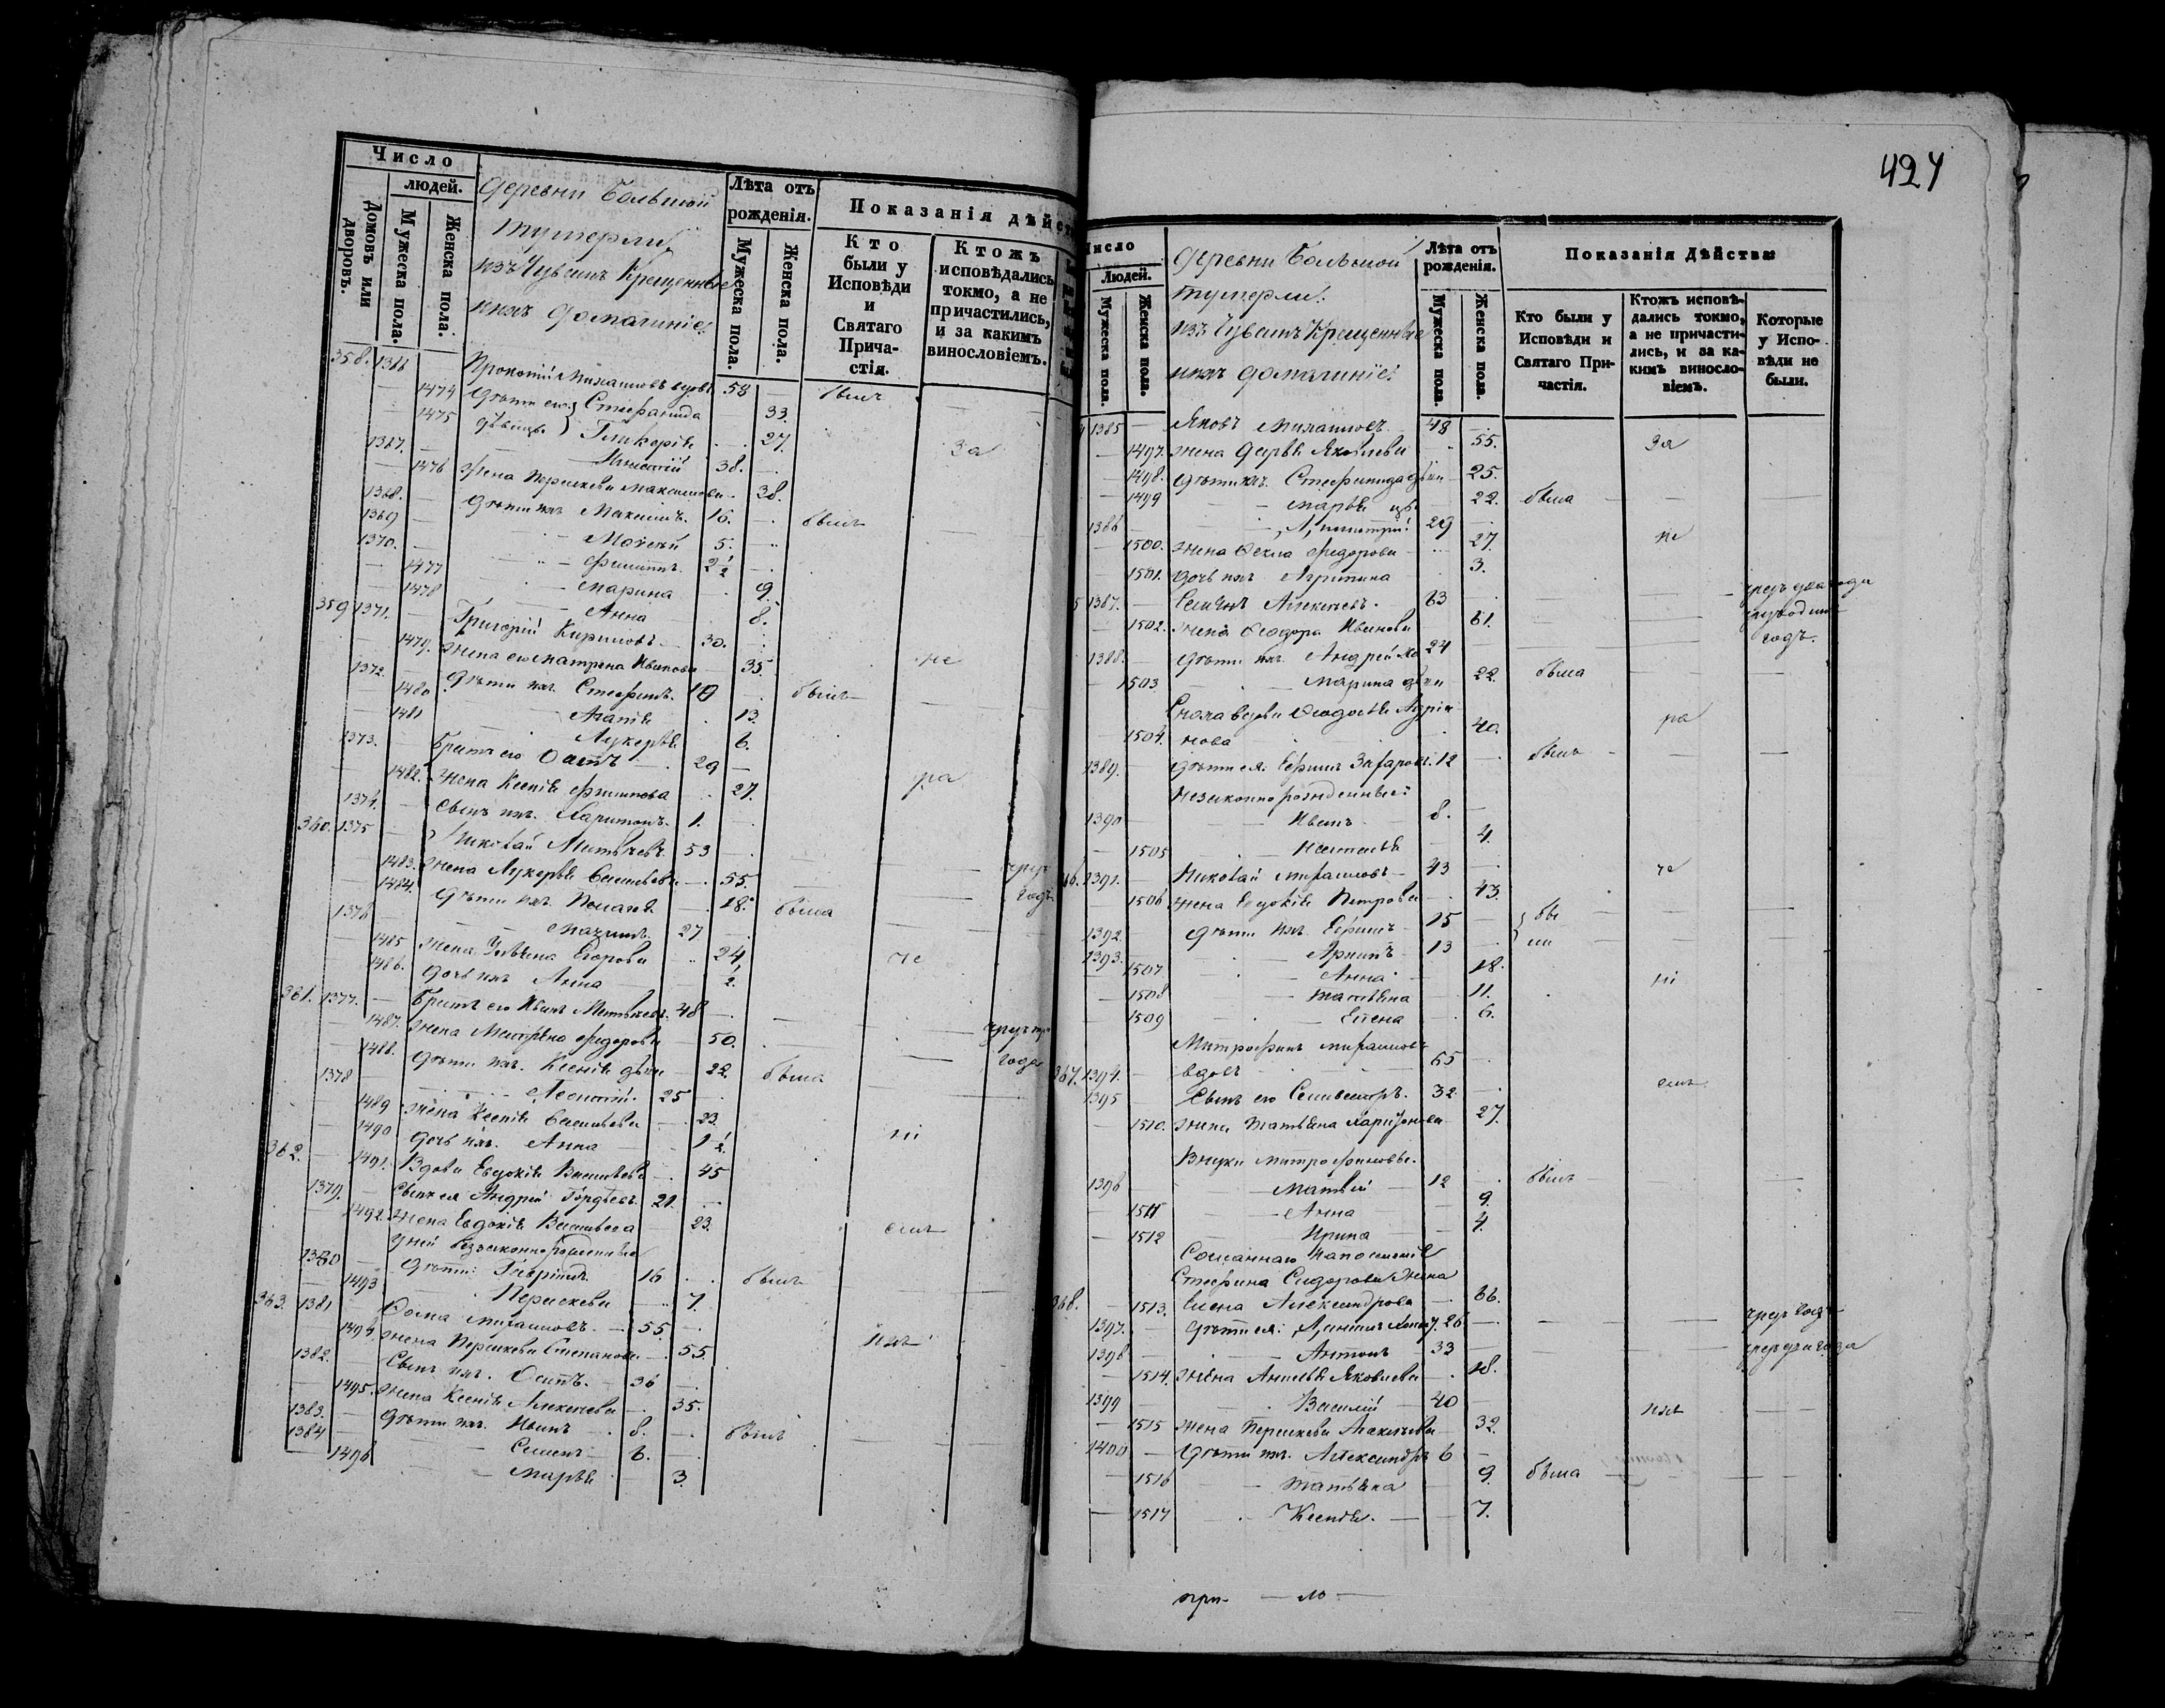 Число
людей.
Домовъ или дворовъ.
Мужеска пола.
Женска пола.
Деревни Большой
Тугаерли
изъ Чувашъ Крещенные
ихъ домашніе:
Лѣта отъ рожденія.
Мужеска пола.
Женска пола.
Показанія дѣйст
Кто были у Исповѣди и Святаго Прича-стія.
Ктожъ исповѣдались токмо, а не причастились, и за какимъ винословіемъ.
358. 1366 Прокопій Михаиловъ вдовъ 58 былъ
1474 Дѣти его: Стефанида 33.
1475 дѣвицы Гликерія 27. за
1367. 38.
1476 Жена Парискева Максимова 38.
1368. Дѣти ихъ Максимъ. 16. былъ
1369 Моисей 5.
1370. Филиппъ. 2 1/2
1477 Марина 9.
1478 Анна 8.
359 1371. Григорій Кириловъ 30.
1479. Жена его Матрена Иванова 35. не
1372. Дѣти ихъ Стефанъ. 10 былъ
1480 Агапія 13.
1481 Лукерья 6.
1373. Братъ его Осипъ 29
1482. Жена Ксенія Филипова 27. ра
1374. Сынъ ихъ. Харитонъ. 1.
360. 1375 Николай Матвѣевъ. 53
1483. Жена Лукерья Савельева 55. чрез
1484. Дѣти ихъ Пелагея 18. была годъ
1376 27
1485 Жена Ульяна Егорова 24 че
1486. Дочь ихъ Анна 1/2.
361. 1377. Братъ его Иванъ Матвѣевъ. 48
1487. Жена Матрена Федорова 50. чрезъ
1488. Дѣти ихъ. Ксенія дѣви 22. была года
1378 Леонтій. 25
1489 Жена Ксенія Савельева 23.
1490 Дочь ихъ. Анна 1 1/2 ні
362. 1491. Вдова Евдокія Васильева 45
1379. Сынъ ея Андрей Гордѣевъ. 21.
1492. Жена Евдокія Васильева 23. емъ
у ней беззаконнорожденные
1380 Дѣти: 16 былъ
1493 Парискева 7.
363. 1381 Фома Михаиловъ. 55.
1494 Жена Парискева Степанова 55. ихъ
1382. Сынъ ихъ. Осипъ. 36
1495. Жена Ксенія Алексѣева 35.
1383. Дѣти ихъ Иванъ 8. былъ
1384 Семенъ 6.
1496 Марья 3.
424
Число
Людей.
Мужеска пола.
Женска пола.
Деревни Большой
Тугаерли.
изъ Чувашъ Крещенные
ихъ домашніе:
Лѣта отъ рожденія.
Мужеска пола.
Женска пола.
Показанія Дѣйства:
Кто были у Исповѣди и Святаго При-частія.
Ктожъ исповѣ-дались токмо, а не причасти-лись, и за ка-кимъ виносло-віемъ.
Которые у Испо-вѣди не были.
4 1385 Яковъ Михаиловъ 48
1497. Жена Дарья Яковлева 55. за
1498. Дѣти ихъ. Стефанида дѣви 25.
1499 Марья 22. была
1386 Димитрій 29
1500. Жена Фекла Федорова 27. не
1501. Дочь ихъ Агрипина 3.
5 1387. Семенъ Алексѣевъ. 63 чрезъ два года
1502. Жена Феодора Иванова 61.
1388. Дѣти ихъ. Андрей 24 годъ.
1503 Марина дѣви 22. была
Сноха вдова Феодосья Андрія
1504. нова 40. ра
1389. Дѣти ея: Ефимъ Захаровъ. 12 былъ
Незаконнорожденные:
1390 Иванъ 8.
1505 Наталья 4.
66. 1391. Николай Михаиловъ 43 че
1506 Жена Евдокія Петрова 43.
1392. Дѣти ихъ. Ефимъ 15 бы
1393. Архипъ 13 ли
1507 Анна 18.
1508 Татьяна 11. ні
1509 Елена 6.
Митрофанъ Михаиловъ
367. 1394. вдовъ 65
1395 Сынъ его Селивестръ. 32 емъ
1510. Жена Татьяна Харитонова 27.
Внуки Митрофановы.
1396 Матвей 12 былъ
1511 Анна 9.
1512 Ирина 4.
Сосланнаго на поселеніе
Стефана Сидорова жена
368. 1513. Елена Александрова 66.
1397. Дѣти ея: 26 чрезъ годъ
1398 Антонъ 33 чрезъ два года
1514. Жена Анисья Яковлева 28.
1399 Василій 40 ихъ
1515 Жена Парискева Алексѣева 32
1400 Дѣти ихъ. Александръ 6
1516 Татьяна 9. была
1517 Ксенія. 7.
при- ло